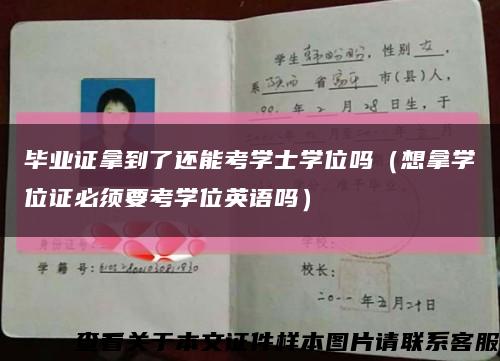 学生韩盼盼，性别女，
系陕西省富平市(县)人，
年2月28日生，于
毕业证拿到了还能考学士学位吗（想拿学
位证必须要考学位英语吗）
学校：
学 籍 号：
校长：
二〇一一年五月二十日
查看关于本文证件样本图片请联系客服